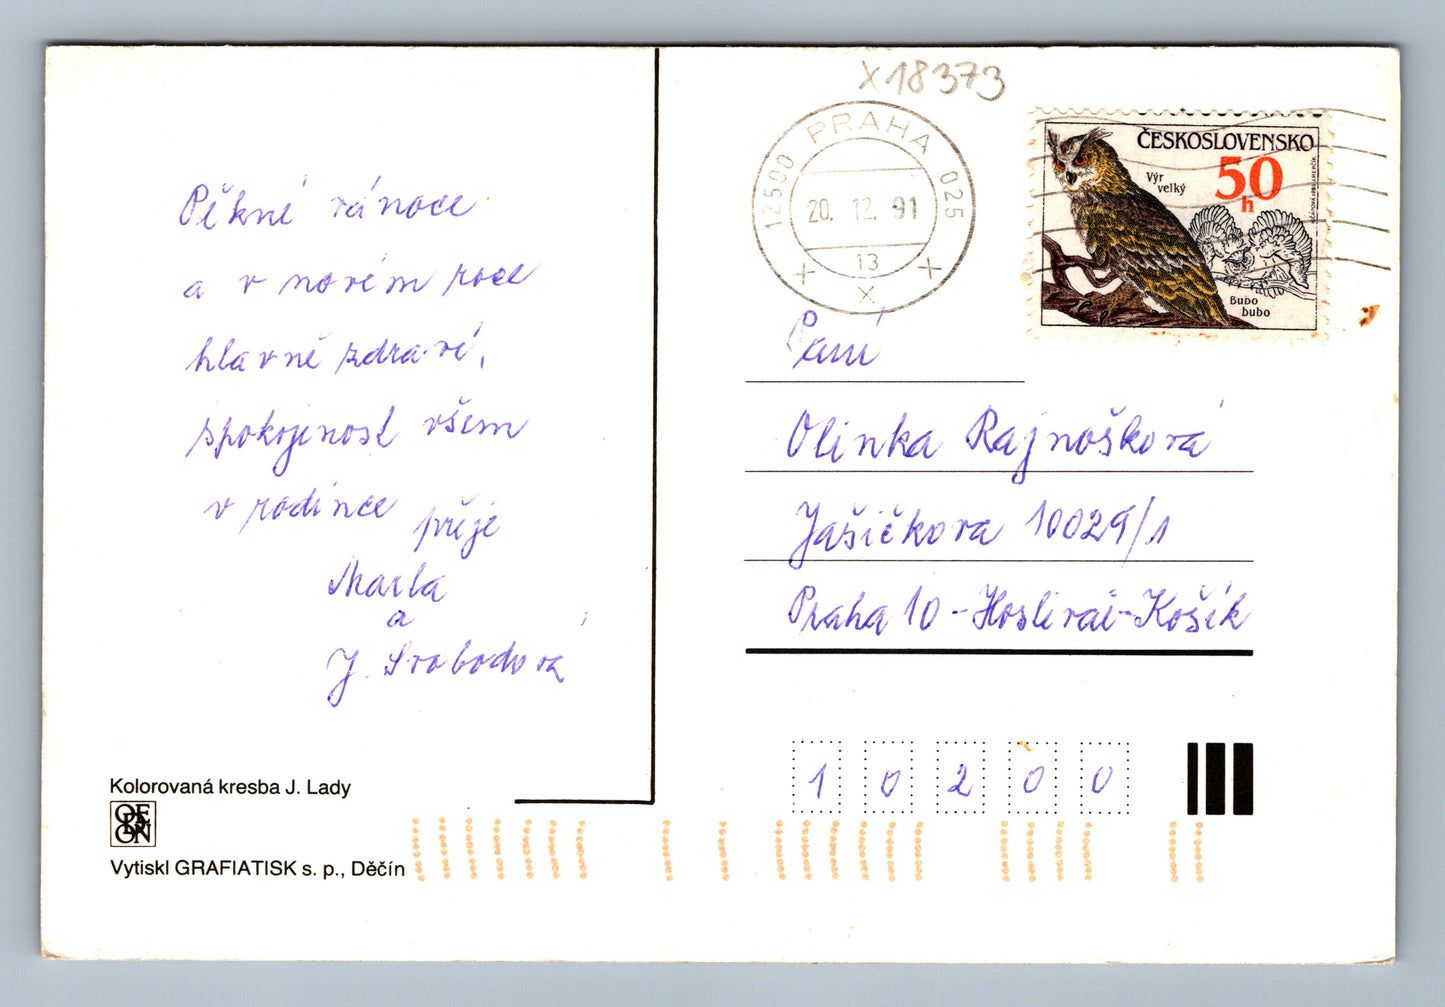 X18373
12500 PRAHA 025
20. 12. 91
13
x
ČESKOSLOVENSKO
50
h
Výr
velký
Bubo
bubo
Pěkné vánoce
a v novém roce
hlavně zdraví,
spokojenost všem
v rodince
přeje
Marta
a
J. Svobodová
Paní
Olinka Rajnošková
Jašíčkova 10029/1
Praha 10 - Hostivař - Košík
1 0 2 0 0
Kolorovaná kresba J. Lady
ODEON
Vytiskl GRAFIATISK s. p., Děčín